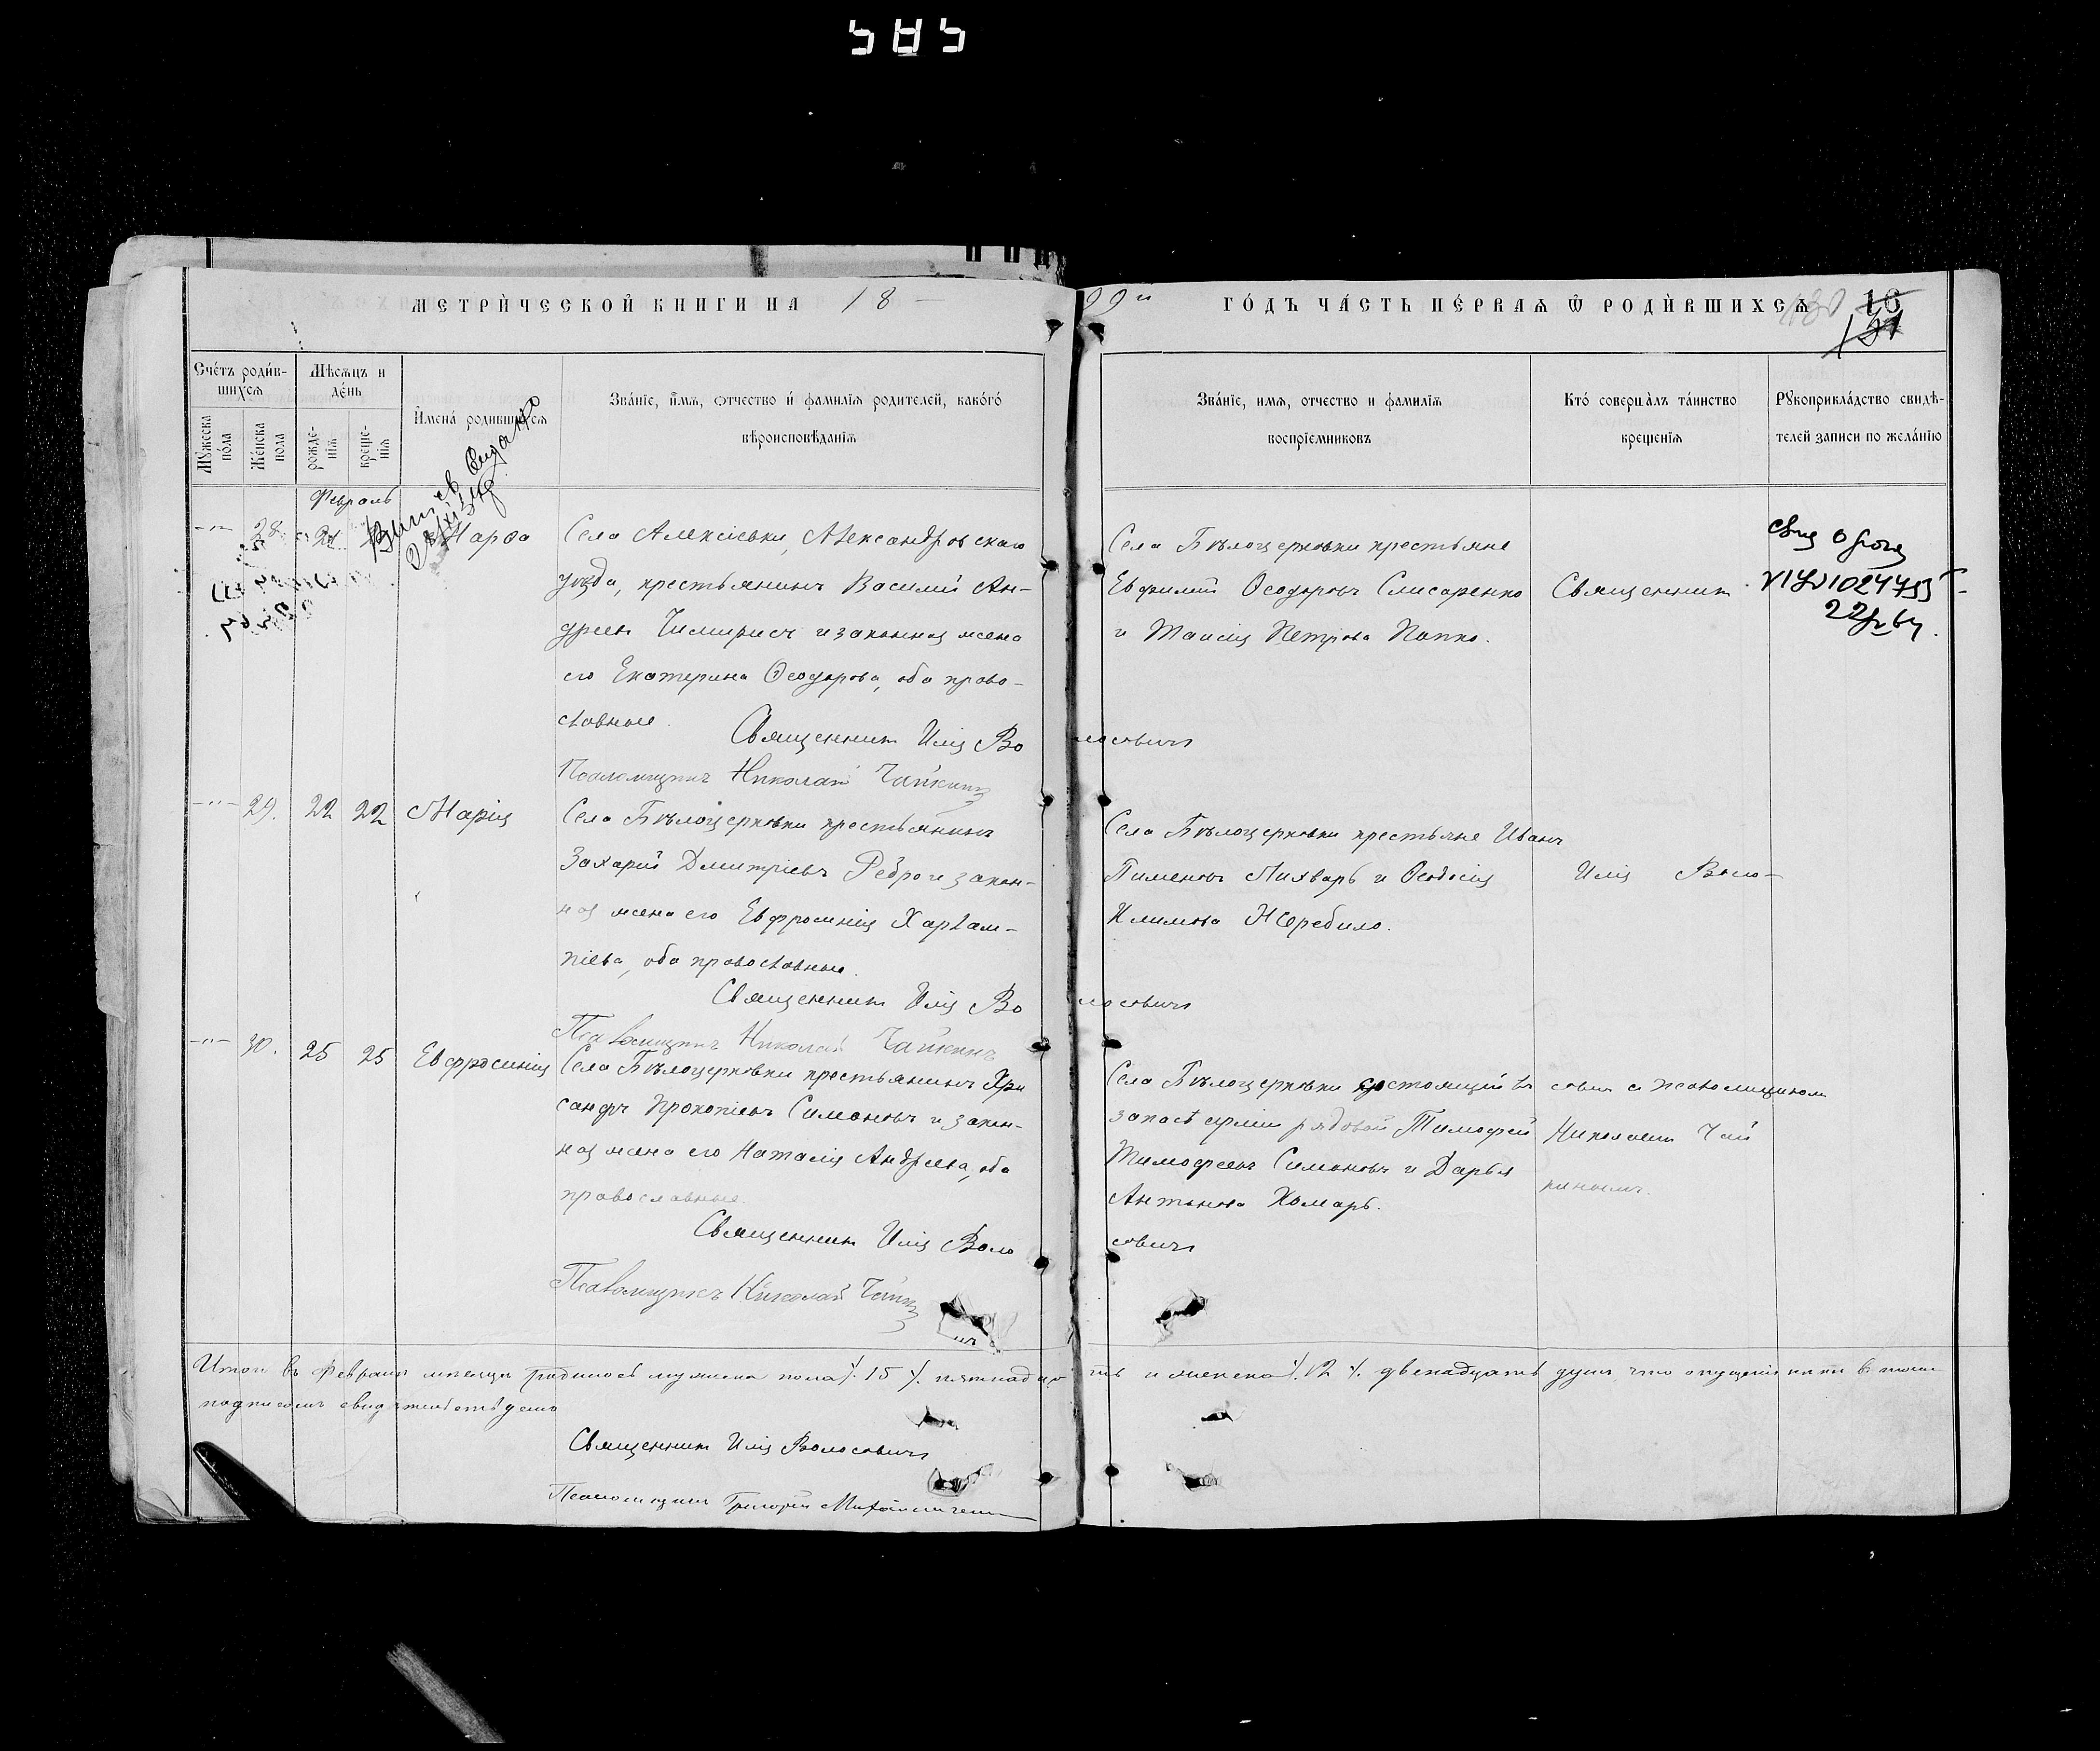 585
МЕТРИЧЕСКОЙ КНИГИ НА 18 —
99й ГОДЪ ЧАСТЬ ПЕРВАЯ Ѿ РОДИВШИХСЯ
Счетъ родив-
шихся
Мужеска
пола
Женска
пола
Мѣсяцъ и
день
рожде-
нія
креще-
нія
Имена родившихся
Званіе, имя, отчество и фамилія родителей, какого
вѣроисповѣданія
Званіе, имя, отчество и фамилія
воспріемниковъ
Кто совершалъ таинство
крещенія
Рукоприкладство свидѣ-
телей записи по желанію
Февраль
28 21 Марѳа
Села Алексіевки, Александровскаго
уѣзда, крестьянинъ Василій Ан-
дреевъ и законная жена
его Екатерина Ѳеодорова, оба право-
славные.
Священникъ Илія Во
лосовичъ
Псаломщикъ Николай Чайкинъ
Села Бѣлоцерковки крестьяне
Евфимій Ѳеодоровъ Слисаренко
и Таисія Петрова Папко.
Священникъ
1024795
22
64
29. 22 22 Марія
Села Бѣлоцерковки крестьянинъ
Захарій Дмитріевъ Ребро и закон-
ная жена его Евфросинія Харлам-
піева, оба православные.
Священникъ Илія Во
лосовичъ
Псаломщикъ Николай Чайкинъ
Села Бѣлоцерковки крестьяне Иванъ
Пименовъ Лихварь и Ѳеодосія
Климова Жеребило.
Илія Воло-
30. 25 25 Евфросинія
Села Бѣлоцерковки крестьянинъ Хри
санфъ Прокопіевъ Симоновъ и закон-
ная жена его Наталія Андреева, оба
православные.
Священникъ Илія Воло
совичъ
Псаломщикъ Николай Чайкинъ
Села Бѣлоцерковки состоящій въ
запасѣ арміи рядовой Тимофей
Тимофеевъ Симоновъ и Дарья
Антонова Комарь.
совичъ съ псаломщикомъ
Николаемъ Чай
кинымъ.
Итого въ Февралѣ мѣсяцѣ родилось мужеска пола ./. 15 ./. пятнадцать и женска ./. 12 ./. двенадцать душъ, что
подписомъ свидѣтельствуемъ
Священникъ Илія Волосовичъ
Псаломщикъ Григорій